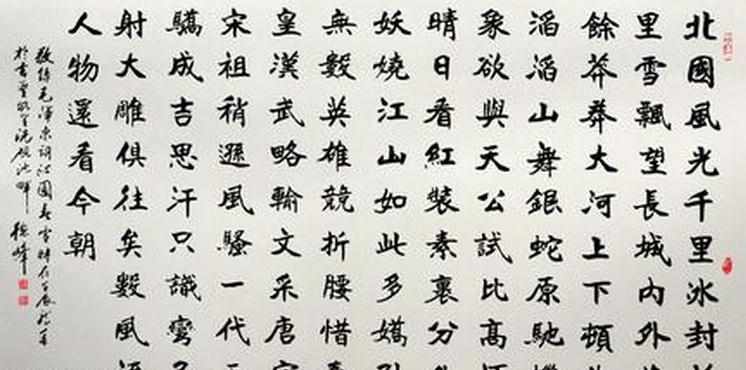 北國風光千里冰封
里雪飄望長城內外
餘莽莽大河上下頓
滔滔山舞銀蛇原馳
象欲與天公試比高
晴日看紅裝素裹分
妖嬈江山如此多嬌
無數英雄競折腰惜
皇漢武略輸文采唐
宋祖稍遜風騷一代
驕成吉思汗只識彎
射大雕俱往矣數風
人物還看今朝
敬錄毛澤東詞沁園春雪時在